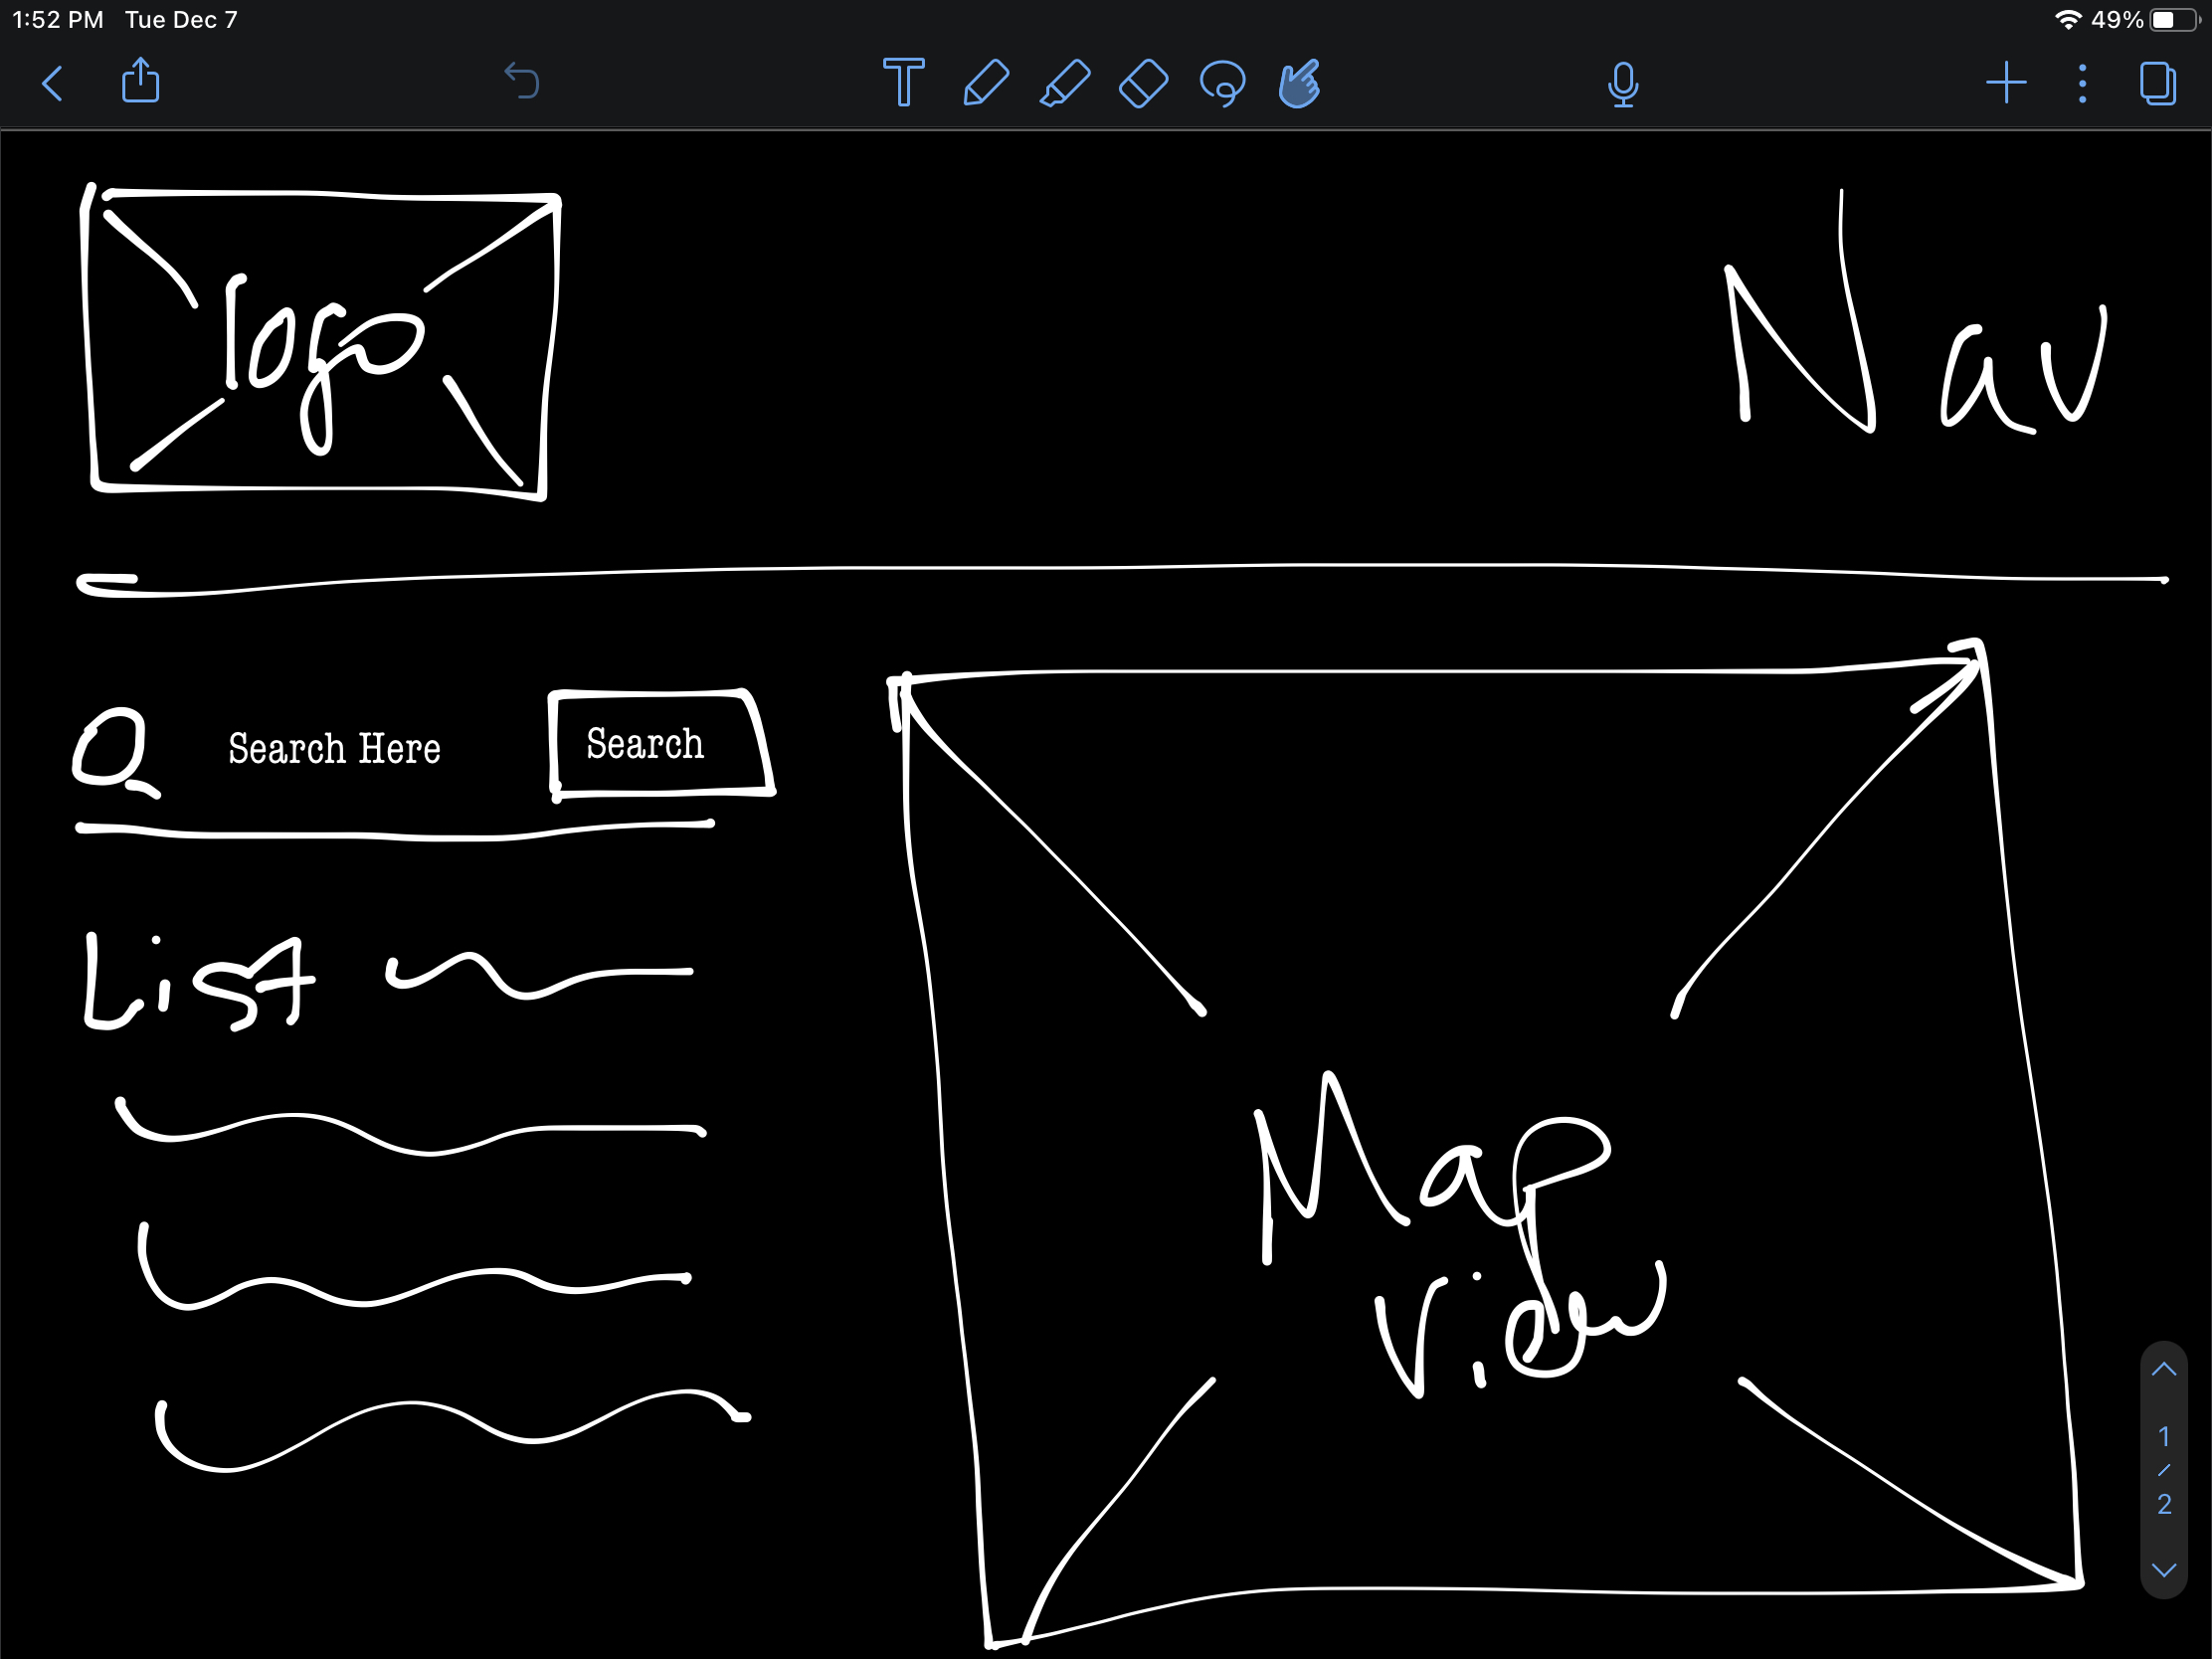 1:52 PM Tue Dec 7
49%
T
logo
Nav
Search Here
Search
List
Map
View
1
/
2